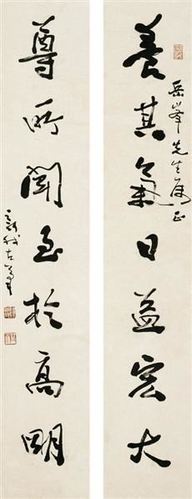 養其氣日益宏大
岳峯先生屬正
尊所聞至於高明